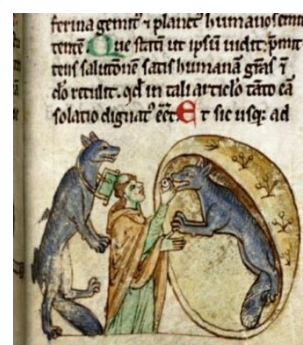 ferina gemitꝰ ⁊ planctꝰ humanos emit
tentē. Que statī ut ip̄sū uidit: p̄mit
tens salutōnē satis humanā gr̄as
dō retulit. qd̄ in tali artic̄lo tāto eā
solatio dignatꝰ eēt. Et sic usq; ad